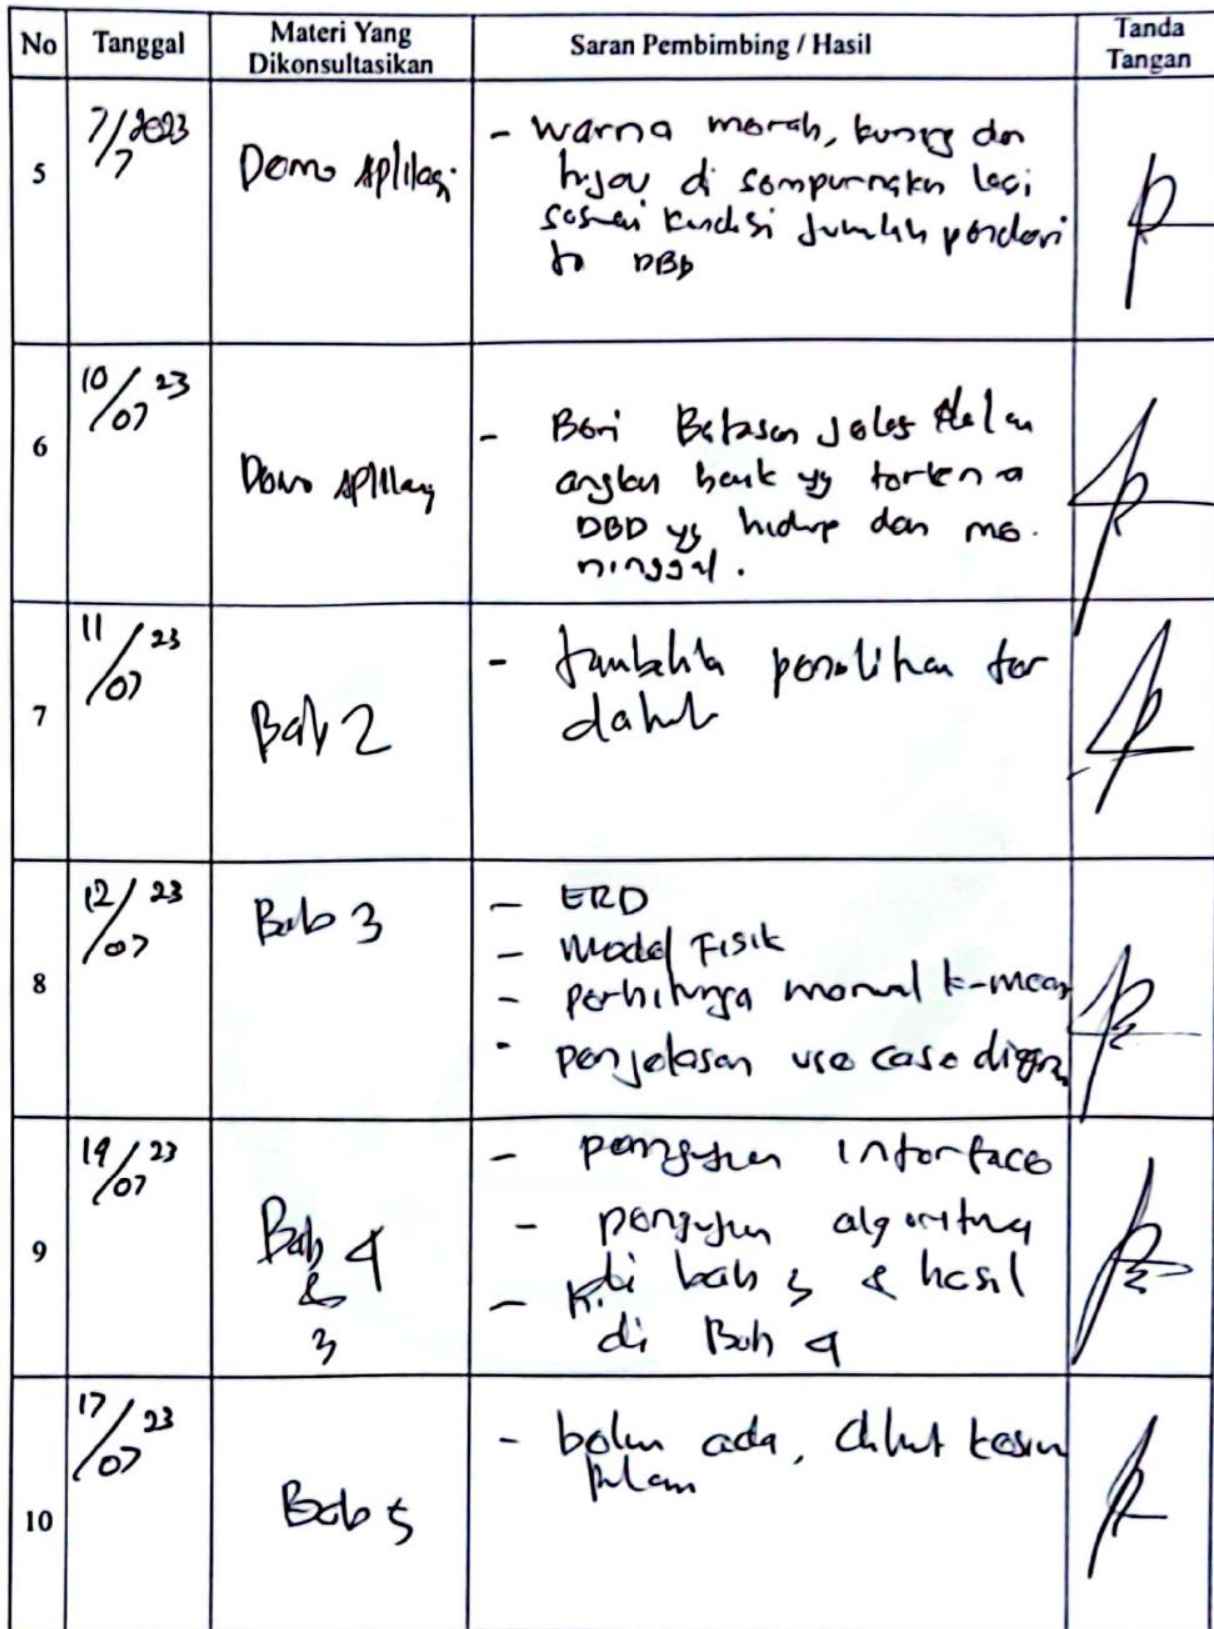 No Tanggal Materi Yang Dikonsultasikan Saran Pembimbing / Hasil Tanda Tangan
5
7/7 2023
Demo Aplikasi
- Warna merah, kuning dan
hijau di sempurnakan lagi
sesuai kondisi jumlah penderi
ta DBD
6
10/07 23
Demo Aplikasi
- Beri Batasan jelas dalam
angka baik yg terkena
DBD yg hidup dan me-
ninggal.
7
11/07 23
Bab 2
- tambahkan penelitian ter
dahulu
8
12/07 23
Bab 3
- ERD
- Model Fisik
- perhitungan manual k-means
- penjelasan use case diagram
9
14/07 23
Bab 4
&
3
- pengujian interface
- pengujian algoritma
di bab 3 & hasil
di Bab 4
10
17/07 23
Bab 5
- belum ada, dibuat kesim
pulan